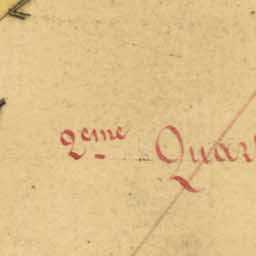 2eme Quar